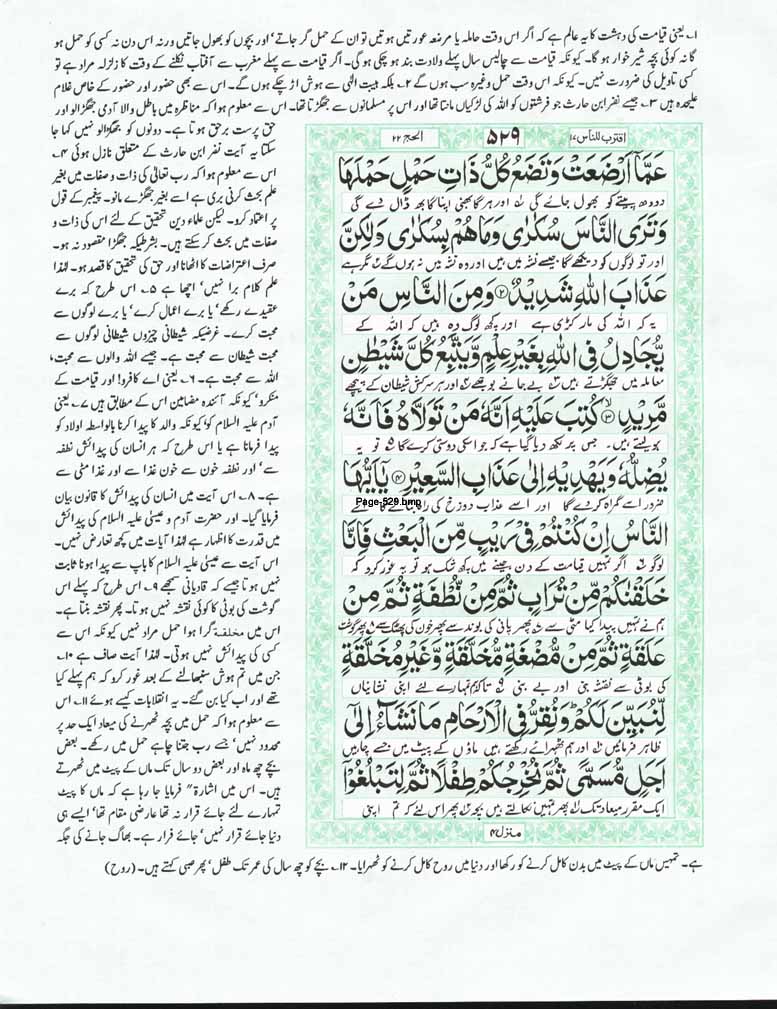 ۱۔ یعنی قیامت کی دہشت کا یہ عالم ہے کہ اگر اس وقت حاملہ یا مرضعہ عورتیں ہوتیں تو ان کے حمل گر جاتے' اور بچوں کو بھول جاتیں ورنہ اس دن نہ کسی کو حمل ہو
گا نہ کوئی بچہ شیر خوار ہو گا۔ کیونکہ قیامت سے چالیس سال پہلے ولادت بند ہو چکی ہوگی۔ اگر قیامت سے پہلے مغرب سے آفتاب نکلنے کے وقت کا زلزلہ مراد ہے تو
کسی تاویل کی ضرورت نہیں۔ کیونکہ اس وقت حمل وغیرہ سب ہوں گے ۲۔ بلکہ ہیبت الٰہی سے ہوش اڑ چکے ہوں گے۔ اس سے بھی حضور اور حضور کے خاص غلام
علیحدہ ہیں ۳۔ جیسے نفر ابن حارث جو فرشتوں کو اللہ کی لڑکیاں مانتا تھا اور اس پر مسلمانوں سے جھگڑتا تھا۔ اس سے معلوم ہوا کہ مناظرہ میں باطل والا آدمی جھگڑالو اور
حق پرست برحق ہوتا ہے۔ دونوں کو جھگڑالو نہیں کہا جا
سکتا یہ آیت نفر ابن حارث کے متعلق نازل ہوئی ۴۔
اس سے معلوم ہوا کہ رب تعالٰی کی ذات و صفات میں بغیر
علم بحث کرنی بری ہے اسے بغیر جھگڑے مانو۔ پیغمبر کے قول
پر اعتماد کرو۔ لیکن علماء دین تحقیق کے لئے اس کی ذات و
صفات میں بحث کر سکتے ہیں۔ بشرطیکہ جھگڑا مقصود نہ ہو۔
صرف اعتراضات کا اٹھانا اور حق کی تحقیق کا قصد ہو۔ لہٰذا
علم کلام برا نہیں' اچھا ہے ۵۔ اس طرح کہ برے
عقیدے رکھے' یا برے اعمال کرے' یا برے لوگوں سے
محبت کرے۔ غرضیکہ شیطانی چیزوں شیطانی لوگوں سے
محبت شیطان سے محبت ہے۔ جیسے اللہ والوں سے محبت،
اللہ سے محبت ہے۔ ۶۔ یعنی اے کافرو! اور قیامت کے
منکرو' کیونکہ آئندہ مضامین اس کے مطابق ہیں ۷۔ یعنی
آدم علیہ السلام کو' کیونکہ والد کا پیدا کرنا بالواسطہ اولاد کو
پیدا فرمانا ہے یا اس طرح کہ ہر انسان کی پیدائش نطفہ
سے' اور نطفہ خون سے خون غذا سے اور غذا مٹی سے
ہے۔ ۸۔ اس آیت میں انسان کی پیدائش کا قانون بیان
فرمایا گیا۔ اور حضرت آدم و عیسیٰ علیہ السلام کی پیدائش
میں قدرت کا اظہار ہے لہٰذا آیات میں کچھ تعارض نہیں۔
اس آیت سے عیسیٰ علیہ السلام کا باپ سے پیدا ہونا ثابت
نہیں ہوتا جیسے کہ قادیانی سمجھے ۹۔ اس طرح کہ پہلے اس
گوشت کی بوٹی کا کوئی نقشہ نہیں ہوتا۔ پھر نقشہ بنتا ہے۔
اس میں مخلقۃ گرا ہوا حمل مراد نہیں کیونکہ اس سے
کسی کی پیدائش نہیں ہوتی۔ لہٰذا آیت صاف ہے ۱۰۔
جن میں تم ہوش سنبھالنے کے بعد غور کرو کہ ہم پہلے کیا
تھے اور اب کیا بن گئے۔ یہ انقلابات کیسے ہوئے ۱۱۔ اس
سے معلوم ہوا کہ حمل میں بچہ ٹھہرنے کی میعاد ایک حد پر
محدود نہیں' جسے رب جتنا چاہے حمل میں رکھے۔ بعض
بچے چھ ماہ اور بعض دو سال تک ماں کے پیٹ میں ٹھہرتے
ہیں۔ اس میں اشارۃً فرمایا جا رہا ہے کہ ماں کا پیٹ
تمہارے لئے جائے قرار نہ تھا عارضی مقام تھا' ایسے ہی
دنیا جائے قرار نہیں' جائے فرار ہے۔ بھاگ جانے کی جگہ
ہے۔ تمہیں ماں کے پیٹ میں بدن کامل کرنے کو رکھا اور دنیا میں روح کامل کرنے کو ٹھہرایا۔ ۱۲۔ بچے کو چھ سال کی عمر تک طفل' پھر صبی کہتے ہیں۔ (روح)
اقترب للناس ۱۷
۵۲۹
الحج ۲۲
عَمَّآ اَرْضَعَتْ وَتَضَعُ كُلُّ ذَاتِ حَمْلٍ حَمْلَهَا
دودھ پیتے کو بھول جائے گی اور ہر گابھنی اپنا گابھ ڈال دے گی
وَتَرَى النَّاسَ سُكٰرٰى وَمَا هُمْ بِسُكٰرٰى وَلٰكِنَّ
اور تو لوگوں کو دیکھے گا جیسے نشہ میں ہیں اور وہ نشہ میں نہ ہوں گے مگر ہے
عَذَابَ اللّٰهِ شَدِيْدٌ ۲ وَمِنَ النَّاسِ مَنْ
یہ کہ اللہ کی مار کڑی ہے اور کچھ لوگ وہ ہیں کہ اللہ کے
يُّجَادِلُ فِى اللّٰهِ بِغَيْرِ عِلْمٍ وَّيَتَّبِعُ كُلَّ شَيْطٰنٍ
معاملہ میں جھگڑتے ہیں بے جانے بوجھے اور ہر سرکش شیطان کے پیچھے
مَّرِيْدٍ ۳ كُتِبَ عَلَيْهِ اَنَّهٗ مَنْ تَوَلَّاهُ فَاَنَّهٗ
ہو لیتے ہیں۔ جس پر لکھ دیا گیا ہے کہ جو اسکی دوستی کرے گا تو یہ
يُضِلُّهٗ وَيَهْدِيْهِ اِلٰى عَذَابِ السَّعِيْرِ ۴ يٰٓاَيُّهَا
ضرور اسے گمراہ کردے گا اور اسے عذاب دوزخ کی راہ
Page-529.bmp
النَّاسُ اِنْ كُنْتُمْ فِىْ رَيْبٍ مِّنَ الْبَعْثِ فَاِنَّا
لوگو اگر تمہیں قیامت کے دن جینے میں کچھ شک ہو تو یہ غور کرو کہ
خَلَقْنٰكُمْ مِّنْ تُرَابٍ ثُمَّ مِنْ نُّطْفَةٍ ثُمَّ مِنْ
ہم نے تمہیں پیدا کیا مٹی سے پھر پانی کی بوند سے پھر خون کی پھٹک سے پھر گوشت
عَلَقَةٍ ثُمَّ مِنْ مُّضْغَةٍ مُّخَلَّقَةٍ وَّغَيْرِ مُخَلَّقَةٍ
کی بوٹی سے نقشہ بنی اور بے بنی تاکہ ہم تمہارے لئے اپنی نشانیاں
لِّنُبَيِّنَ لَكُمْ وَنُقِرُّ فِى الْاَرْحَامِ مَا نَشَآءُ اِلٰٓى
ظاہر فرمائیں اور ہم ٹھہرائے رکھتے ہیں ماؤں کے پیٹ میں جسے چاہیں
اَجَلٍ مُّسَمًّى ثُمَّ نُخْرِجُكُمْ طِفْلًا ثُمَّ لِتَبْلُغُوْٓا
ایک مقرر میعاد تک پھر تمہیں نکالتے ہیں بچہ پھر اس لئے کہ تم اپنی
منزل ۴